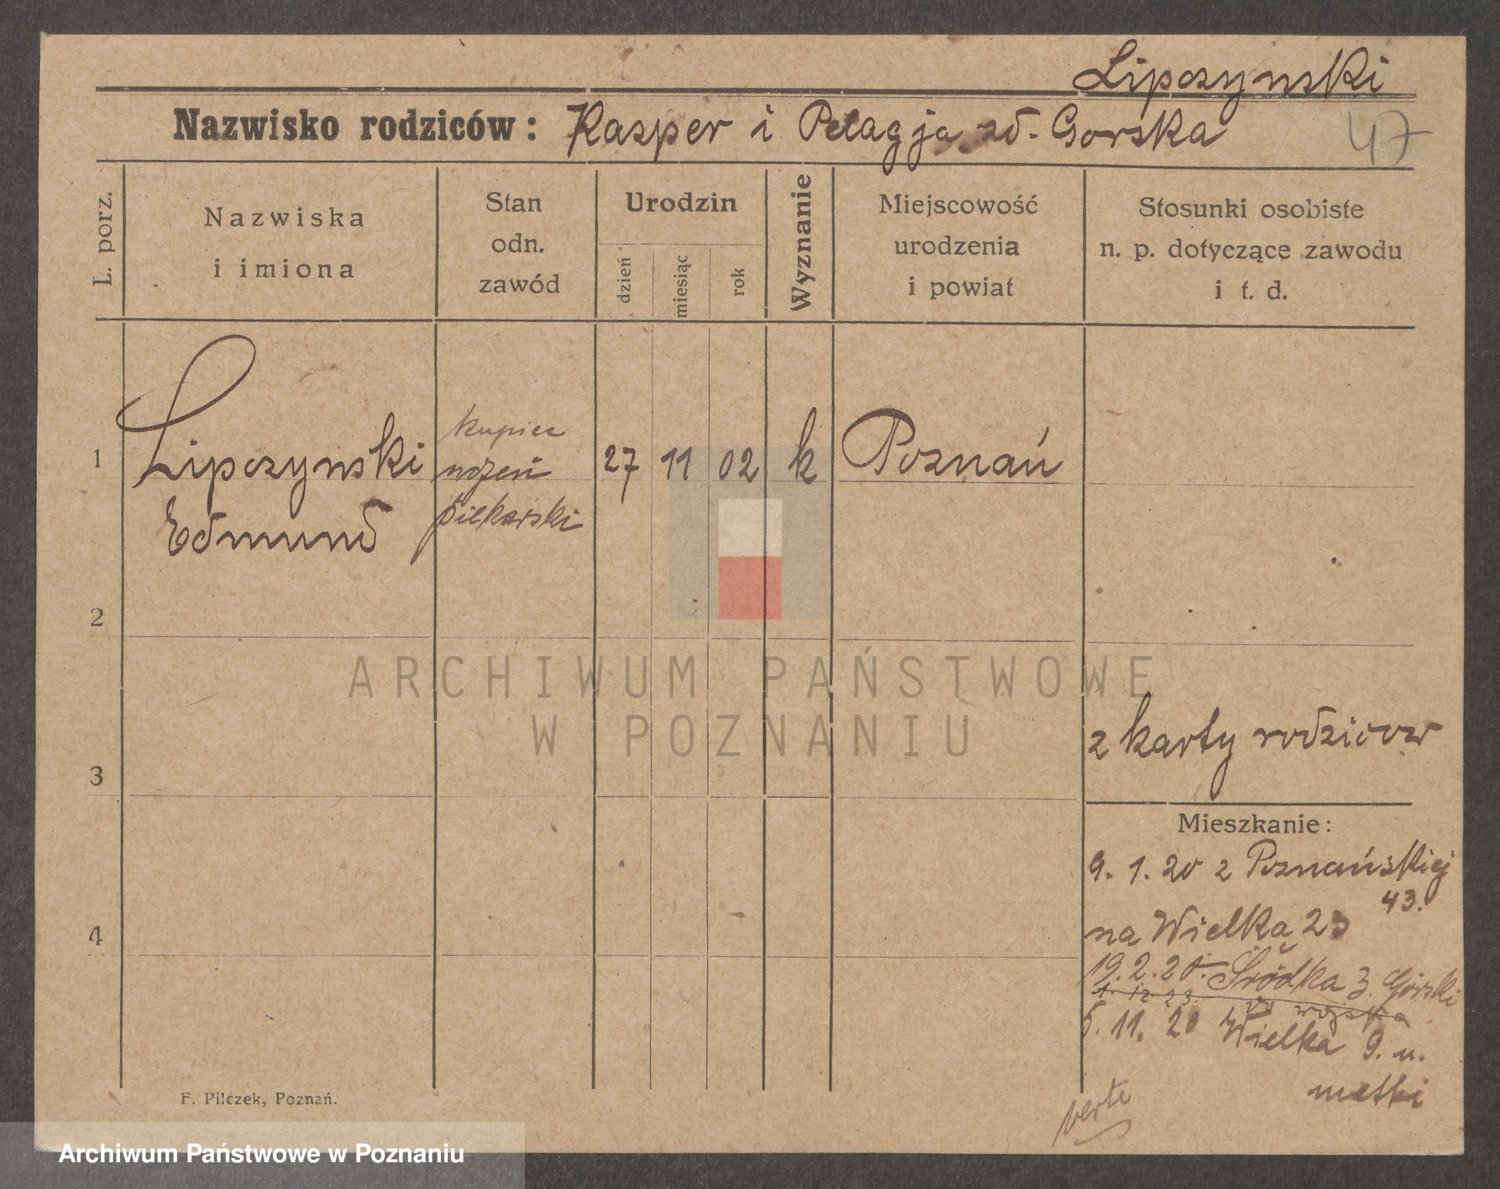 Lipczynski
Nazwisko rodziców: Kasper i Pelagja zd. Gorska
47
L. porz.
Nazwiska
i imiona
Stan
odn.
zawód
Urodzin
dzień
miesiąc
rok
Wyznanie
Miejscowość
urodzenia
i powiat
Stosunki osobiste
n. p. dotyczące zawodu
i t. d.
1
Lipczynski
Edmund
kupiec
uczeń
piekarski
27 11 02 k Poznań
2
ARCHIWUM PAŃSTWOWE
W POZNANIU
z karty rodziców
3
Mieszkanie:
9. 1. 20 z Poznańskiej
43.
na Wielką 23
4
19. 2. 20. Śródka 3. Górski
1. 12 23. do wojska
5. 11. 20 Wielka 9. u.
matki
verte
F. Pilczek, Poznań.
Archiwum Państwowe w Poznaniu